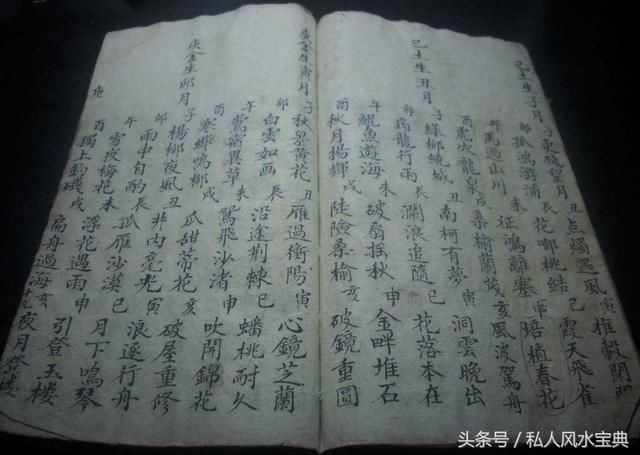 己土生子月 子更殘望月 丑点燭遇風 寅推轂閉門
卯孤鴻游浦 辰花啣桃結 巳霞天飛雀
午馬過山川 未征鴻離塞 申培植春花
酉虎吹龍泉 戌桑榆蘭茂 亥風波駕舟
己土生丑月 子綠柳繞城 丑南柯有夢 寅洞雲晚出
卯病龍行雨 辰瀾浪追隨 巳花落本在
午鯉魚遊海 未破扇摇秋 申金畔堆石
酉秋月揚輝 戌陡險桑榆 亥破鏡重圓
庚金生寅月 子秋景黃花 丑雁過衡陽 寅心鏡芝蘭
卯白雲如画 辰沿途荆棘 巳蟠桃耐久
午鶯啣異草 未鴛飛沙渚 申吹開錦花
酉寒蟬鳴柳 戌瓜甜蒂花 亥破屋重修
庚金生卯月 子楊柳夜風 丑井內亮光 寅浪逐行舟
卯雨中自酌 辰孤雁沙漠 巳月下鳴琴
午雪夜梅花 未浮花遇雨 申引登玉楼
酉獨上釣磯 戌扁舟過海 亥夜月登楼
庚
头条号 / 私人风水宝典